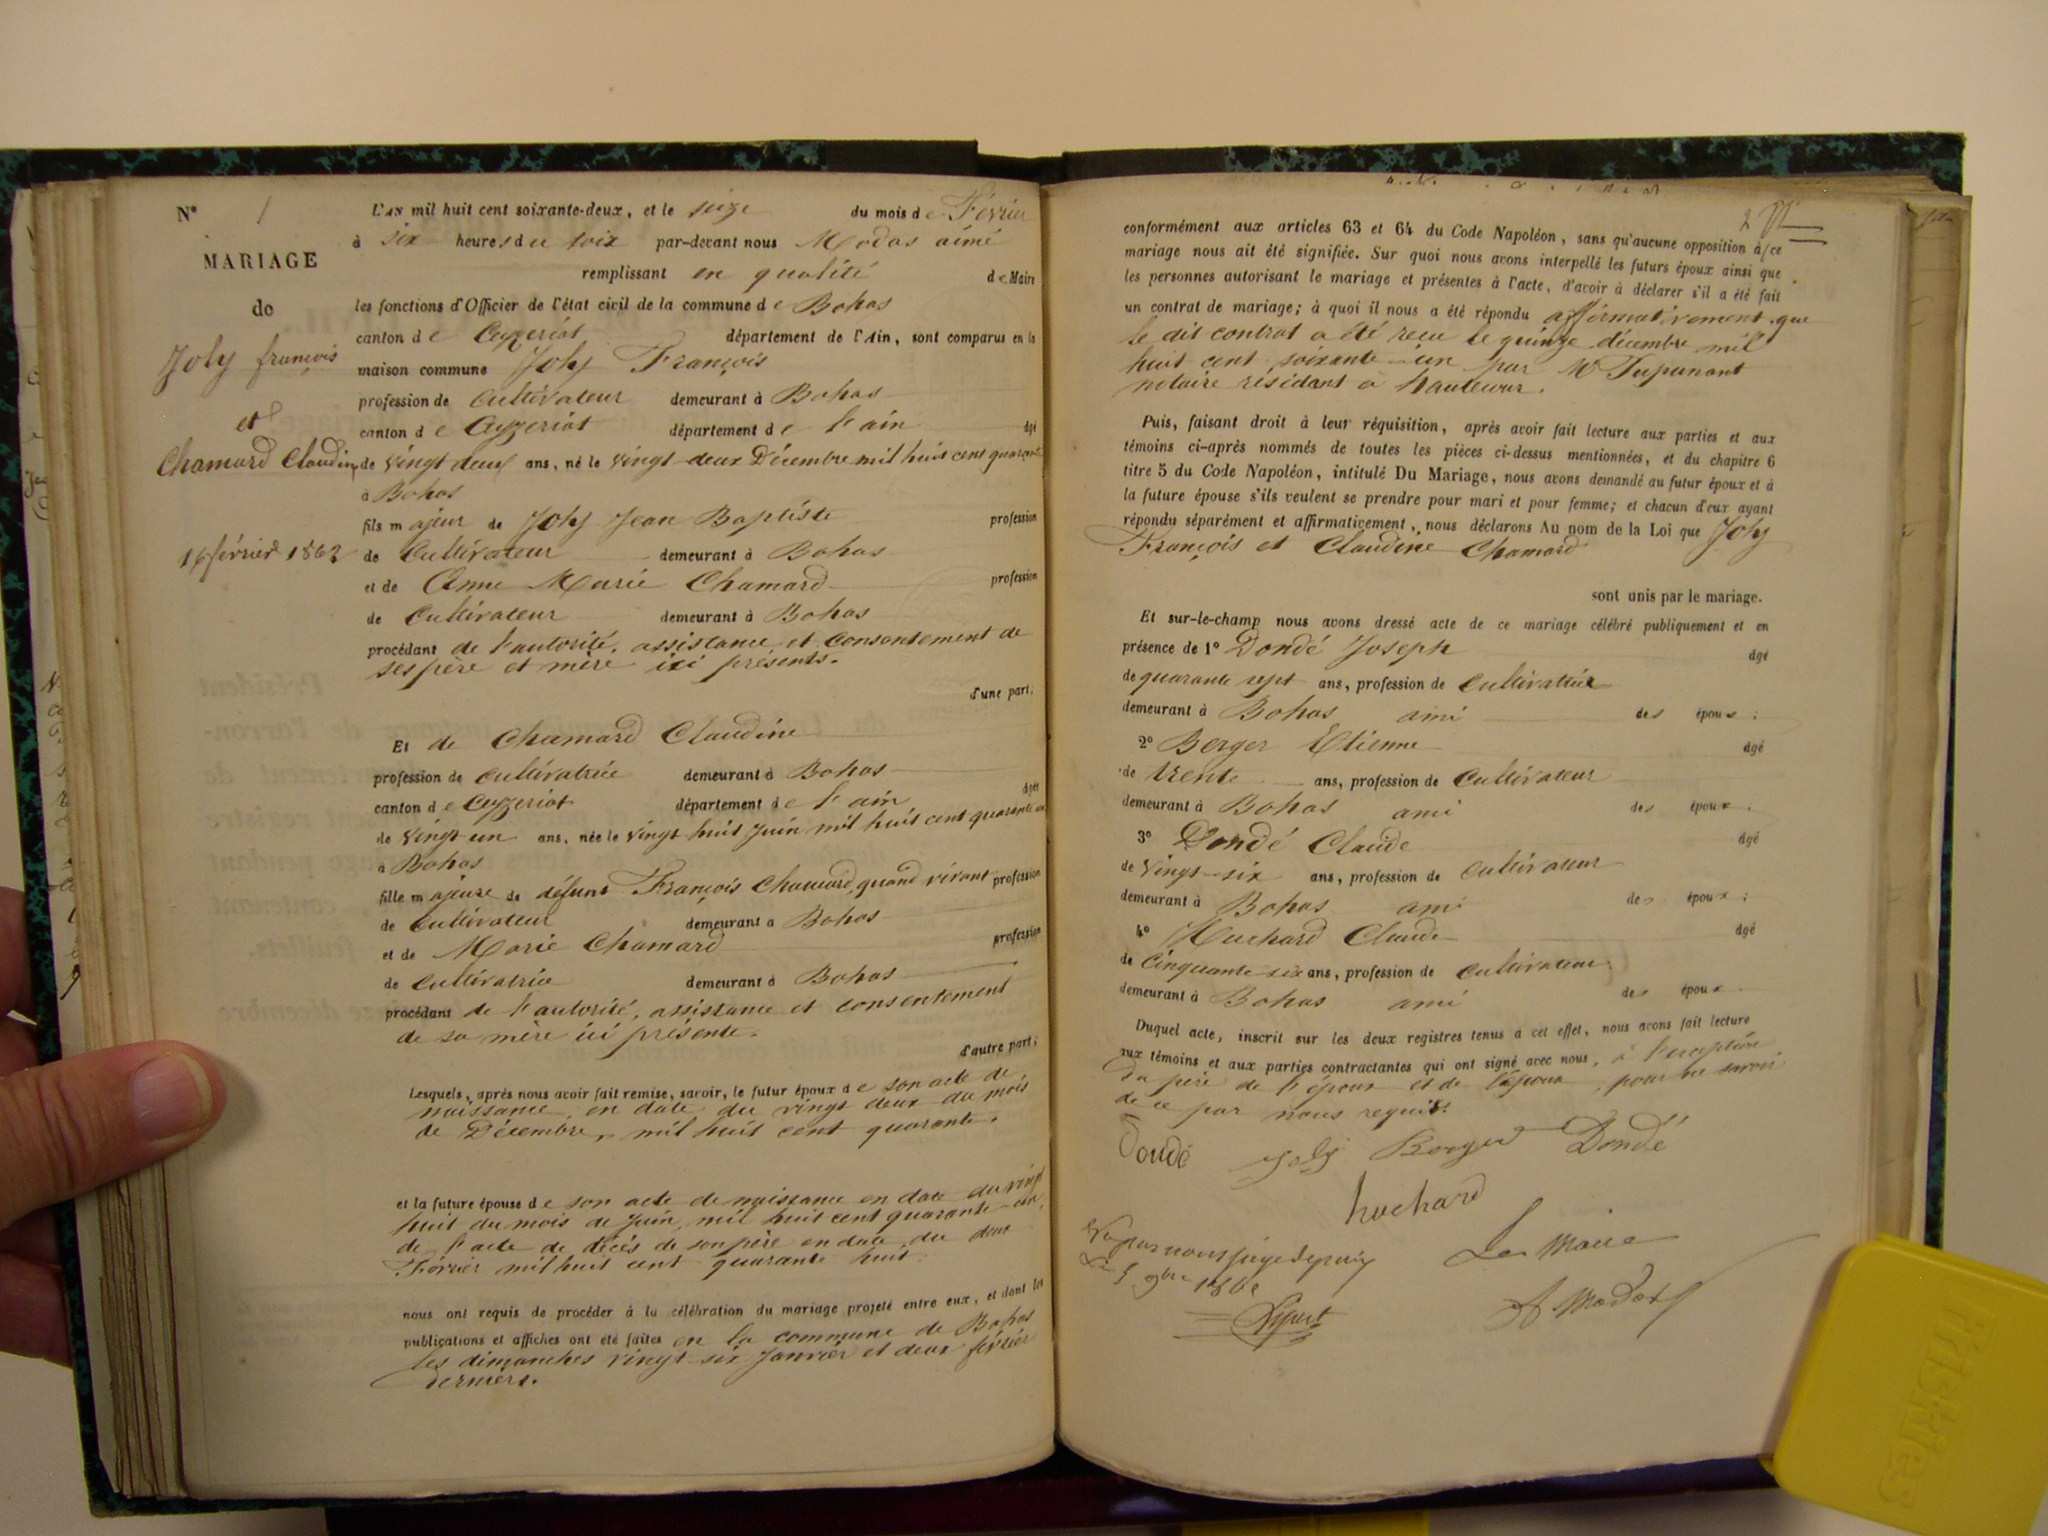 N° 1
MARIAGE
de
Joly françois
et
Chamard Claudine
16 février 1862
L'AN mil huit cent soixante-deux, et le seize du mois de Février
à six heures du soir par-devant nous Modas aimé
remplissant en qualité de Maire
les fonctions d'Officier de l'état civil de la commune de Bohas
canton de Ceyzeriat département de l'Ain, sont comparus en la
maison commune Joly François
profession de Cultivateur demeurant à Bohas
canton de Ceyzeriat département de l'ain âgé
de vingt deux ans, né le vingt-deux Décembre mil huit cent quarante
à Bohas
fils majeur de Joly Jean Baptiste profession
de Cultivateur demeurant à Bohas
et de Anne Marie Chamard profession
de Cultivateur demeurant à Bohas
procédant de l'autorité, assistance et consentement de
ses père et mère ici présents.
d'une part;
Et de Chamard Claudine
profession de cultivatrice demeurant à Bohas
canton de Ceyzeriat département de l'ain âgée
de vingt-un ans, née le vingt huit Juin mil huit cent quarante un
à Bohas
fille majeure de défunt François Chamard, quand vivant profession
de Cultivateur demeurant à Bohas
et de Marie Chamard profession
de cultivatrice demeurant à Bohas
procédant de l'autorité, assistance et consentement
de sa mère ici présente.
d'autre part;
Lesquels, après nous avoir fait remise, savoir, le futur époux de son acte de
naissance, en date du vingt deux du mois
de Décembre, mil huit cent quarante.
et la future épouse de son acte de naissance en date du vingt
huit du mois de Juin, mil huit cent quarante-un,
de l'acte de décès de son père en date du deux
Février mil huit cent quarante huit.
nous ont requis de procéder à la célébration du mariage projeté entre eux, et dont les
publications et affiches ont été faites en la commune de Bohas
les dimanches vingt-six Janvier et deux février
derniers.
conformément aux articles 63 et 64 du Code Napoléon, sans qu'aucune opposition à ce
mariage nous ait été signifiée. Sur quoi nous avons interpellé les futurs époux ainsi que
les personnes autorisant le mariage et présentes à l'acte, d'avoir à déclarer s'il a été fait
un contrat de mariage; à quoi il nous a été répondu affirmativement que
le dit contrat a été reçu le quinze décembre mil
huit cent soixante-un par Me
notaire résidant à hauteville.
Puis, faisant droit à leur réquisition, après avoir fait lecture aux parties et aux
témoins ci-après nommés de toutes les pièces ci-dessus mentionnées, et du chapitre 6
titre 5 du Code Napoléon, intitulé Du Mariage, nous avons demandé au futur époux et à
la future épouse s'ils veulent se prendre pour mari et pour femme; et chacun d'eux ayant
répondu séparément et affirmativement, nous déclarons Au nom de la Loi que Joly
François et Claudine Chamard
sont unis par le mariage.
Et sur-le-champ nous avons dressé acte de ce mariage célébré publiquement et en
présence de 1° Dondé Joseph âgé
de quarante sept ans, profession de cultivateur
demeurant à Bohas ami des époux;
2° Berger Etienne âgé
de trente ans, profession de Cultivateur
demeurant à Bohas ami des époux;
3° Dondé Claude âgé
de vingt-six ans, profession de Cultivateur
demeurant à Bohas ami des époux;
4° Huchard Claude âgé
de Cinquante-six ans, profession de cultivateur
demeurant à Bohas ami des époux
Duquel acte, inscrit sur les deux registres tenus à cet effet, nous avons fait lecture
aux témoins et aux parties contractantes qui ont signé avec nous, à l'exception
du père de l'époux et de l'épouse, pour ne savoir
de ce par nous requis.
Dondé Joly Berger Dondé
huchard
Vu par nous juge de paix
Le Maire
Le 5 9bre 1862
A Modas